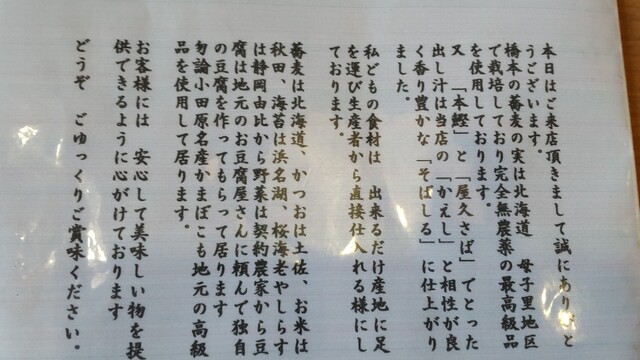 本日はご来店頂きまして誠にありがと
うございます。
橋本の蕎麦の実は北海道　母子里地区
で栽培しており完全無農薬の最高級品
を使用しております。
又　「本鰹」と「屋久さば」でとった
出し汁は当店の「かえし」と相性が良
く香り豊かな「そばしる」に仕上がり
ました。
私どもの食材は　出来るだけ産地に足
を運び生産者から直接仕入れる様にし
ております。
蕎麦は北海道、かつおは土佐、お米は
秋田、海苔は浜名湖、桜海老やしらす
は静岡由比から野菜は契約農家から豆
腐は地元のお豆腐屋さんに頼んで独自
の豆腐を作ってもらって居ります
勿論小田原名産かまぼこも地元の高級
品を使用して居ります。
お客様には　安心して美味しい物を提
供できるように心がけております
どうぞ　ごゆっくりご賞味ください。